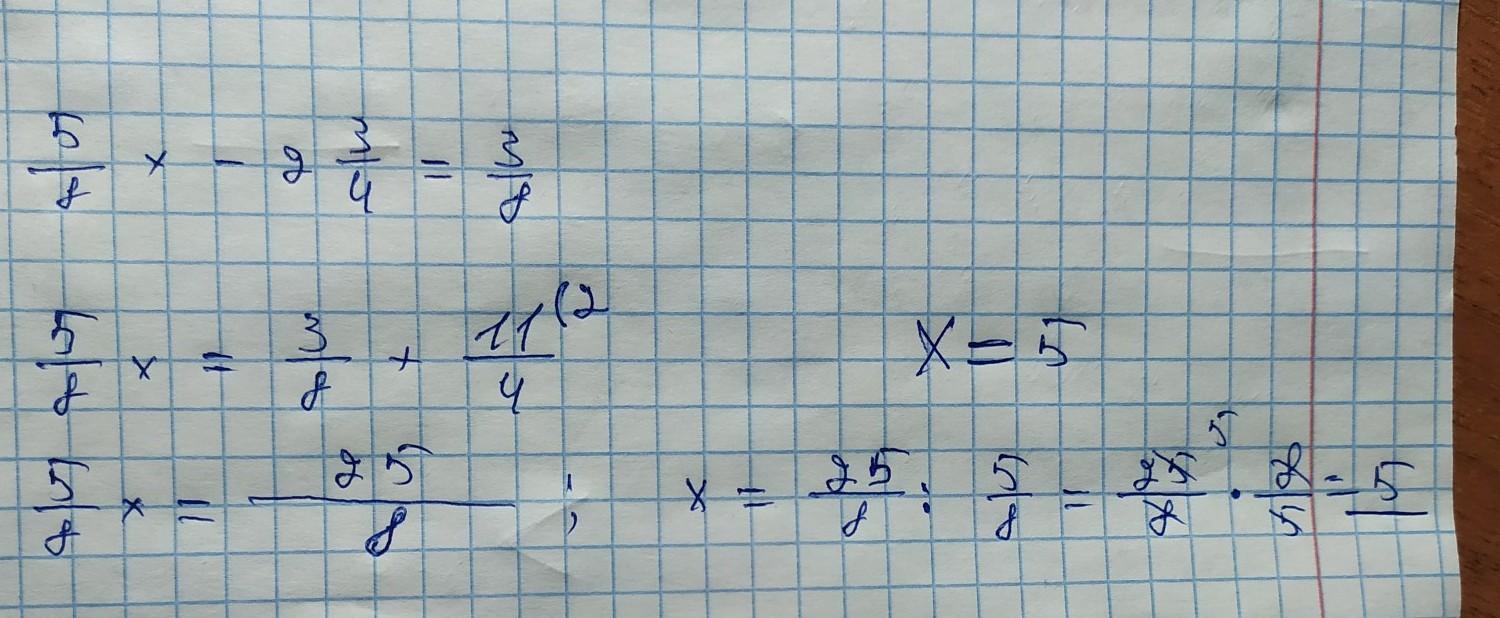 5/8 x - 2 3/4 = 3/8
5/8 x = 3/8 + 11/4 (2
x = 5
5/8 x = 25/8 ; x = 25/8 : 5/8 = 25/8 5 · 8/5 = 5